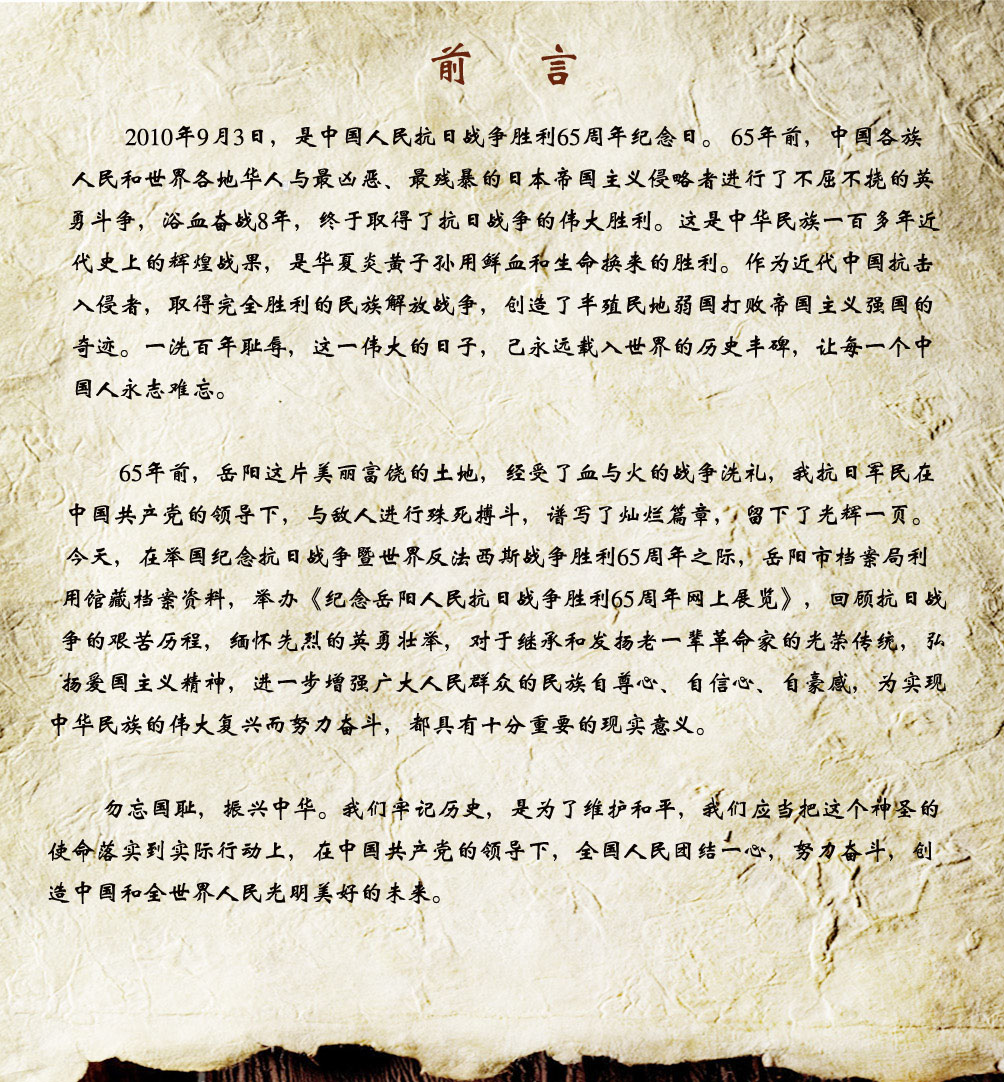 前 言
2010年9月3日，是中国人民抗日战争胜利65周年纪念日。65年前，中国各族
人民和世界各地华人与最凶恶、最残暴的日本帝国主义侵略者进行了不屈不挠的英
勇斗争，浴血奋战8年，终于取得了抗日战争的伟大胜利。这是中华民族一百多年近
代史上的辉煌战果，是华夏炎黄子孙用鲜血和生命换来的胜利。作为近代中国抗击
入侵者，取得完全胜利的民族解放战争，创造了半殖民地弱国打败帝国主义强国的
奇迹。一洗百年耻辱，这一伟大的日子，已永远载入世界的历史丰碑，让每一个中
国人永志难忘。
65年前，岳阳这片美丽富饶的土地，经受了血与火的战争洗礼，我抗日军民在
中国共产党的领导下，与敌人进行殊死搏斗，谱写了灿烂篇章，留下了光辉一页。
今天，在举国纪念抗日战争暨世界反法西斯战争胜利65周年之际，岳阳市档案局利
用馆藏档案资料，举办《纪念岳阳人民抗日战争胜利65周年网上展览》，回顾抗日战
争的艰苦历程，缅怀先烈的英勇壮举，对于继承和发扬老一辈革命家的光荣传统，弘
扬爱国主义精神，进一步增强广大人民群众的民族自尊心、自信心、自豪感，为实现
中华民族的伟大复兴而努力奋斗，都具有十分重要的现实意义。
勿忘国耻，振兴中华。我们牢记历史，是为了维护和平，我们应当把这个神圣的
使命落实到实际行动上，在中国共产党的领导下，全国人民团结一心，努力奋斗，创
造中国和全世界人民光明美好的未来。